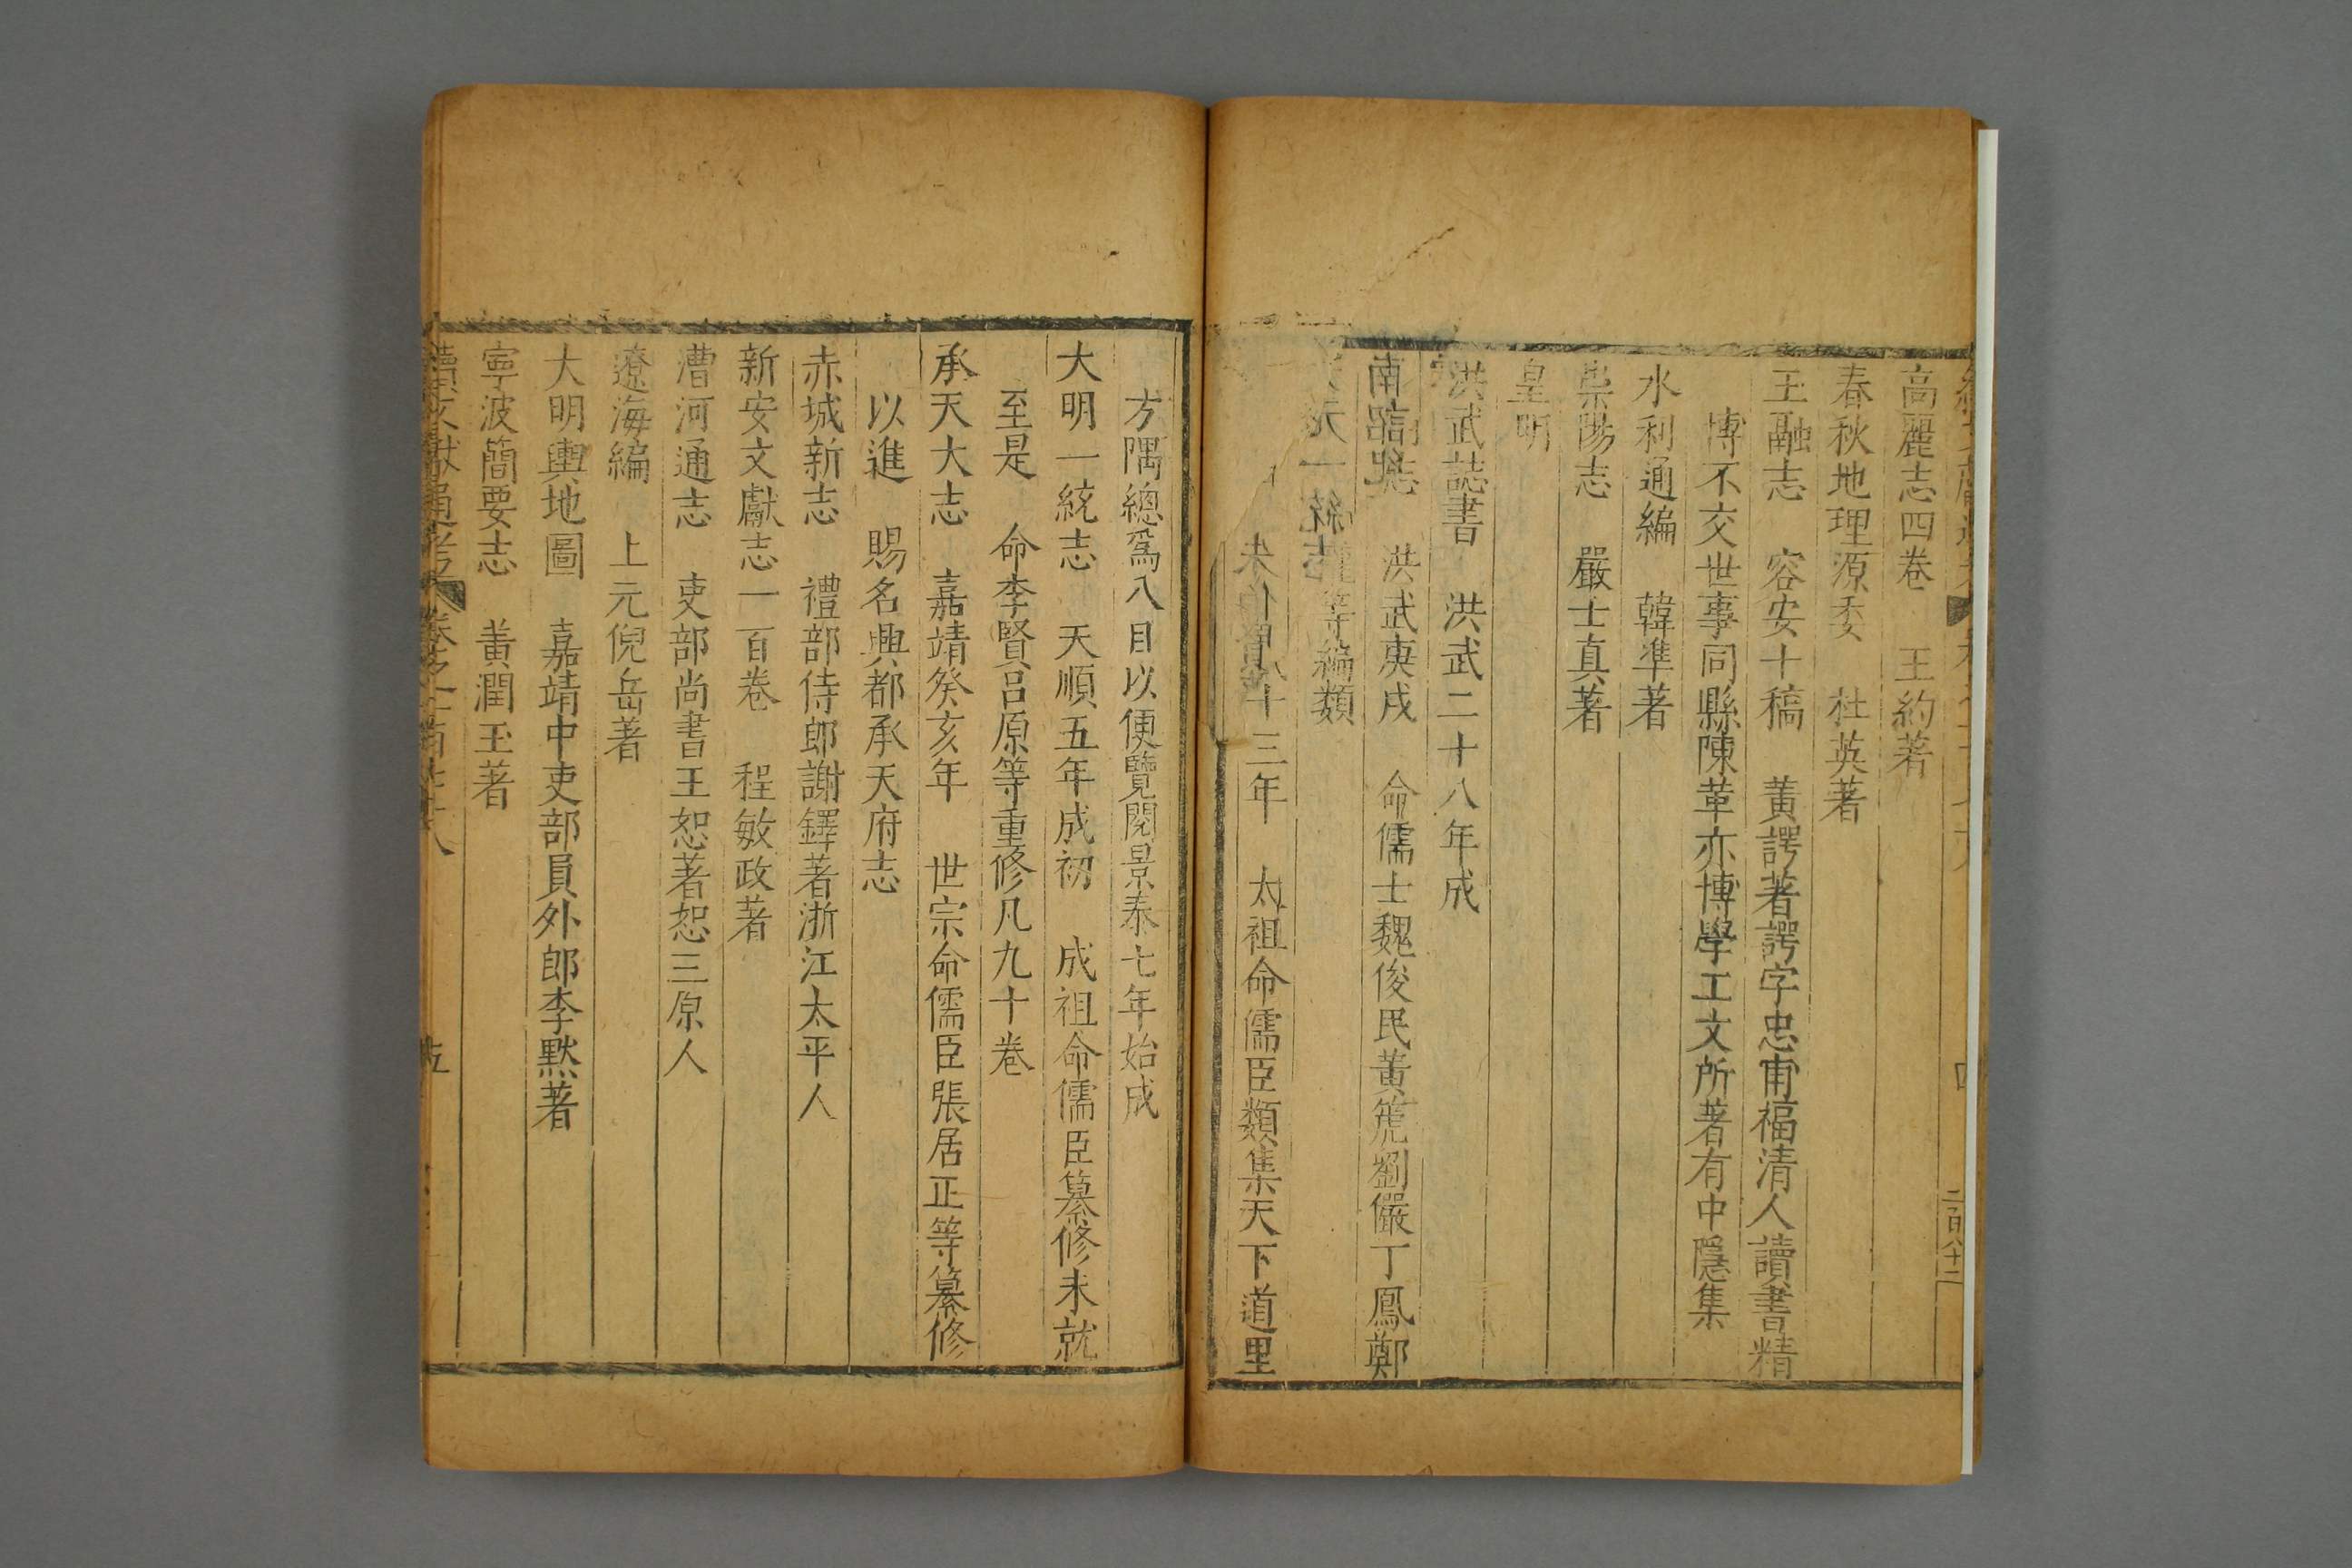 高麗志四卷 王約著
春秋地理源委 杜英著
玉融志 容安十稿 黃諤著諤字忠甫福清人讀書精
博不交世事同縣陳革亦博學工文所著有中隱集
水利通編 韓準著
崇陽志 嚴士真著
皇明
洪武誌書 洪武二十八年成
洪武庚戌 命儒士魏俊民黃篪劉儼丁鳳鄭
等編類
十三年 太祖命儒臣類集天下道里
四
二百八十二
方隅總爲八目以便覽閱景泰七年始成
大明一統志 天順五年成初 成祖命儒臣纂修未就
至是 命李賢呂原等重修凡九十卷
承天大志 嘉靖癸亥年 世宗命儒臣張居正等纂修
以進 賜名興都承天府志
赤城新志 禮部侍郎謝鐸著浙江太平人
新安文獻志一百卷 程敏政著
漕河通志 吏部尚書王恕著恕三原人
遼海編 上元倪岳著
大明輿地圖 嘉靖中吏部員外郎李黙著
寧波簡要志 黃潤玉著
續文獻通考 卷之一百七十八
五